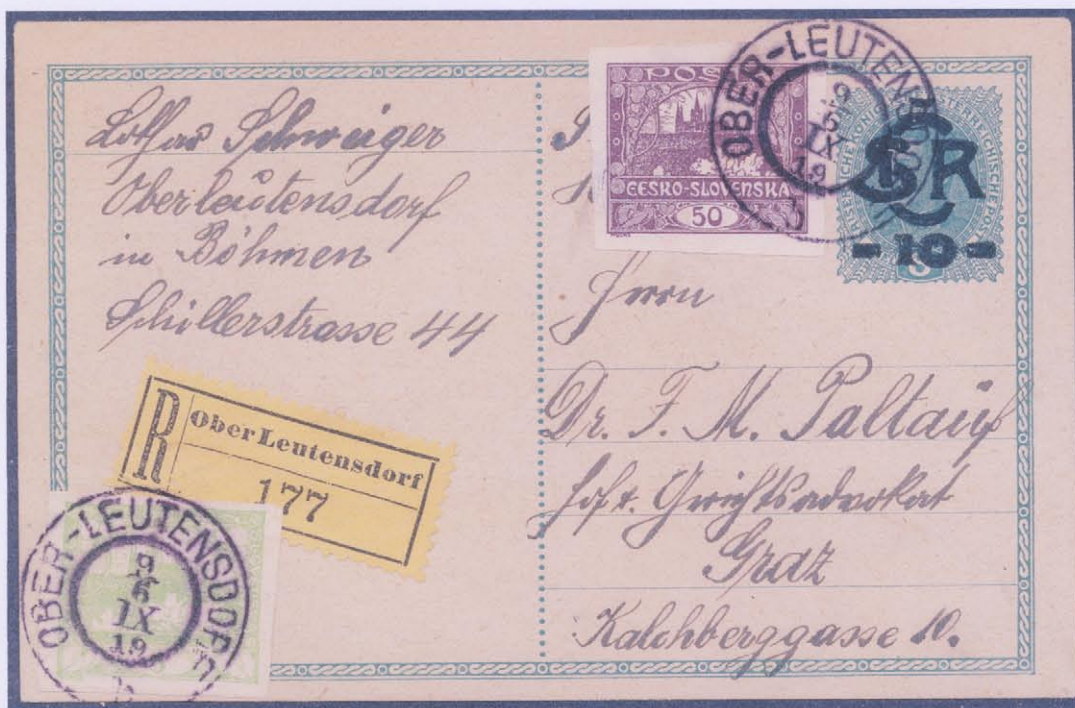 Lothar Schweiger
Oberleutensdorf
in Böhmen
Schillerstrasse 44
R
Ober Leutensdorf
177
OBER-LEUTENSDORF
9
IX
19
POŠTA
ČESKO-SLOVENSKÁ
50
OBER-LEUTENSDORF
9
IX
19
ČSR
-10-
Herrn
Dr. F. M. Paltauf
Graz
Kalchberggasse 10.